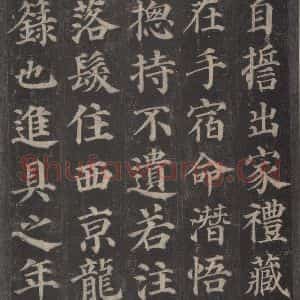 自誓出家禮藏
在手宿命潛悟
揔持不遺若注
落髮住西京龍
錄也進具之年
Shufawang.Cn